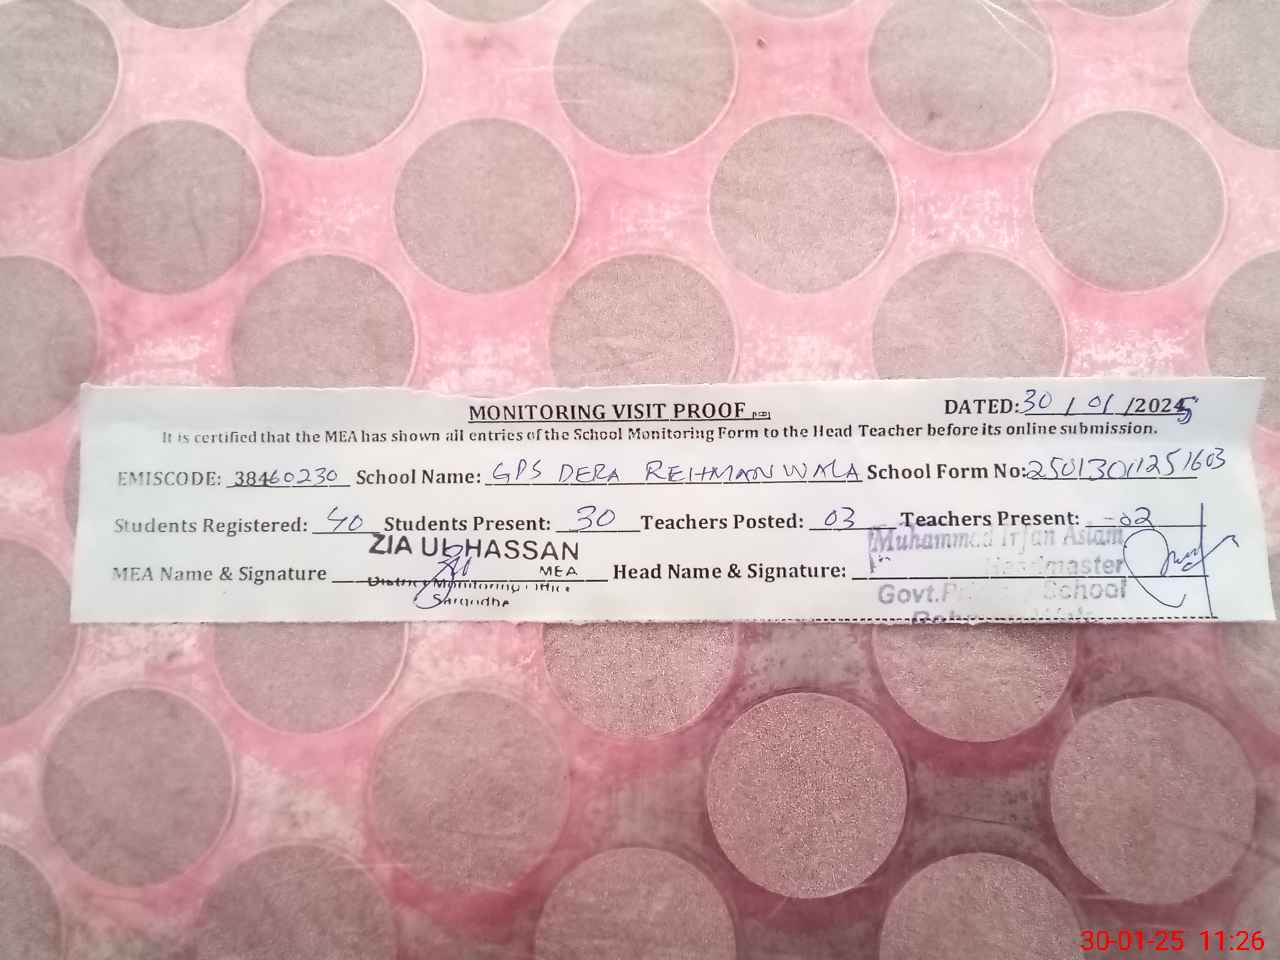 MONITORING VISIT PROOF
DATED: 30 / 01 /2025
It is certified that the MEA has shown all entries of the School Monitoring Form to the Head Teacher before its online submission.
EMISCODE: 38460230 School Name: GPS DERA REHMAN WALA School Form No: 25013011251603
Students Registered: 40 Students Present: 30 Teachers Posted: 03 Teachers Present: 02
ZIA UL HASSAN
Muhammad Irfan Aslam
MEA Name & Signature MEA Head Name & Signature: Headmaster
District Monitoring Office
Govt. School
Sargodha
30-01-25 11:26